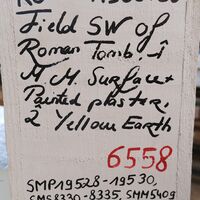 Field SW of
Roman Tomb. I
M.M. Surface +
Painted plaster.
2 Yellow Earth
6558
SMP19528-19530,
SMS8330-8335, SMM5409